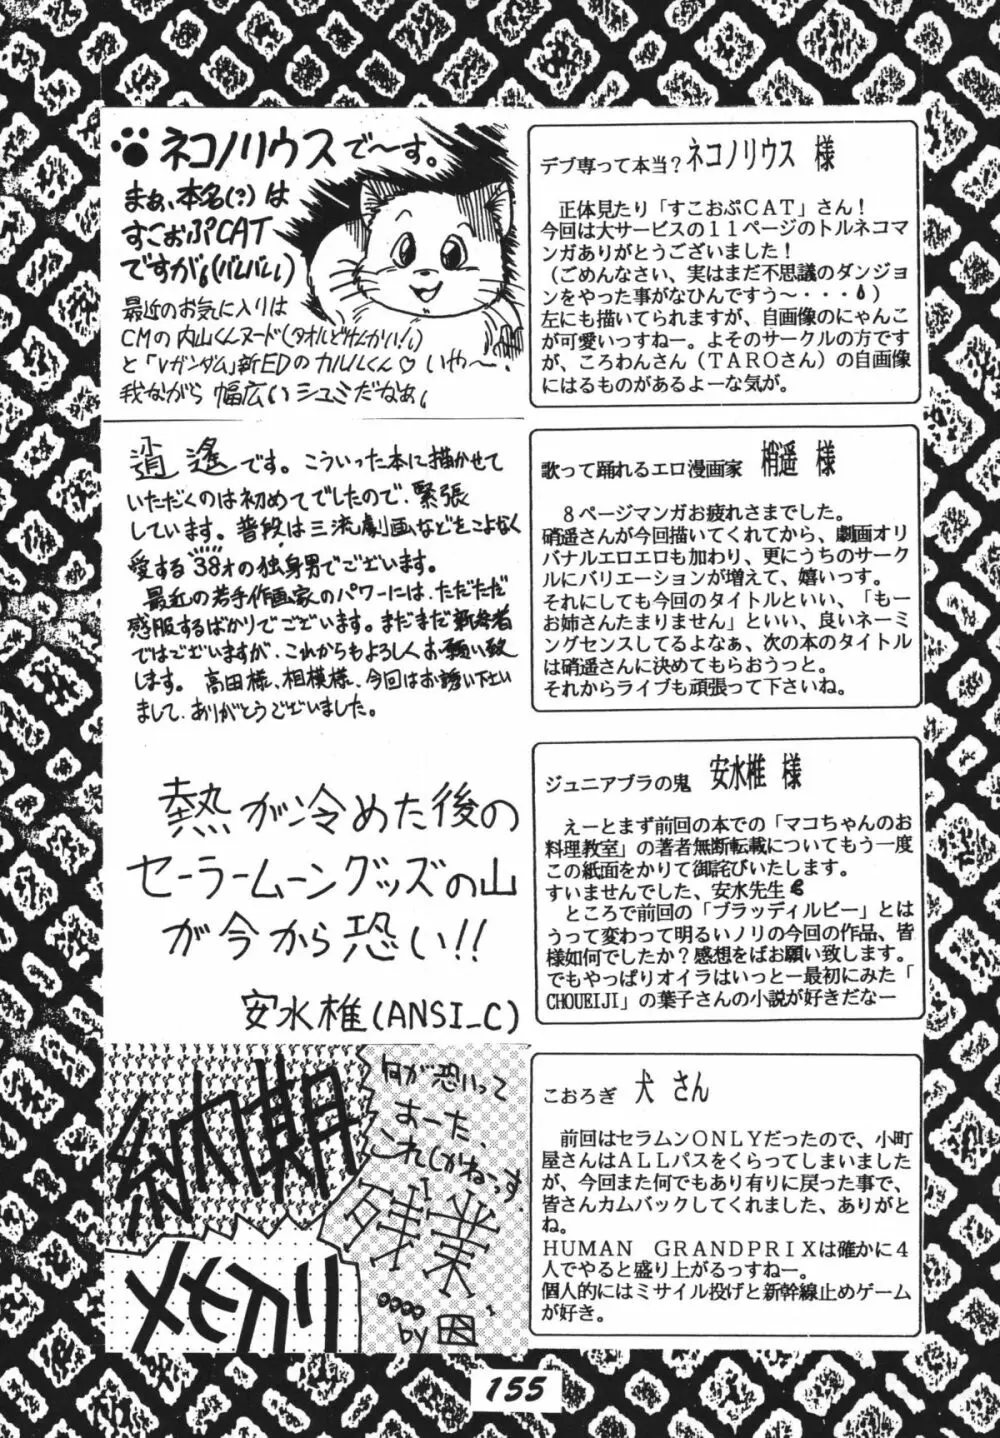 ネコノリウスで〜す。
まぁ、本名(?)は
すこおぷCAT
ですが。(バレバレ)
最近のお気に入りは
CMの内山くんヌード(タオルどけんかい!)
と「Vガンダム」新EDのカルルくん♡ いや〜!
我ながら 幅広いシュミだなぁ。
デブ専って本当？ネコノリウス 様
正体見たり「すこおぷＣＡＴ」さん！
今回は大サービスの１１ページのトルネコマ
ンガありがとうございました！
（ごめんなさい、実はまだ不思議のダンジョ
ンをやった事がなひんですう〜・・・）
左にも描いてられますが、自画像のにゃんこ
が可愛いっすねー。よそのサークルの方です
が、ころわんさん（ＴＡＲＯさん）の自画像
にはるものがあるよーな気が。
逍遙です。こういった本に描かせて
いただくのは初めてでしたので、緊張
しています。普段は三流劇画などをこよなく
愛する38才の独身男でございます。
最近の若手作画家のパワーには、ただただ
感服するばかりでございます。まだまだ新参者
ではございますが、これからもよろしくお願い致
します。高田様、相模様、今回はお誘い下さい
まして、ありがとうございました。
歌って踊れるエロ漫画家 梢遥 様
８ページマンガお疲れさまでした。
硝遥さんが今回描いてくれてから、劇画オリ
バナルエロエロも加わり、更にうちのサーク
ルにバリエーションが増えて、嬉いっす。
それにしても今回のタイトルといい、「もー
お姉さんたまりません」といい、良いネーミ
ングセンスしてるよなぁ、次の本のタイトル
は硝遥さんに決めてもらおうっと。
それからライブも頑張って下さいね。
熱が冷めた後の
セーラームーングッズの山
が今から恐い!!
安水椎(ANSI_C)
ジュニアブラの鬼 安水椎 様
えーとまず前回の本での「マコちゃんのお
料理教室」の著者無断転載についてもう一度
この紙面をかりて御詫びいたします。
すいませんでした、安水先生
ところで前回の「ブラッディルビー」とは
うって変わって明るいノリの今回の作品、皆
様如何でしたか？感想をばお願い致します。
でもやっぱりオイラはいっとー最初にみた「
CHOUEIJI」の葉子さんの小説が好きだなー
納期
〆切り
何が恐いって
おーた、
これしかねーっす
残業
by 因
こおろぎ 犬 さん
前回はセラムンＯＮＬＹだったので、小町
屋さんはＡＬＬパスをくらってしまいました
が、今回また何でもあり有りに戻った事で、
皆さんカムバックしてくれました、ありがと
ね。
ＨＵＭＡＮ　ＧＲＡＮＤＰＲＩＸは確かに４
人でやると盛り上がるっすねー。
個人的にはミサイル投げと新幹線止めゲーム
が好き。
155